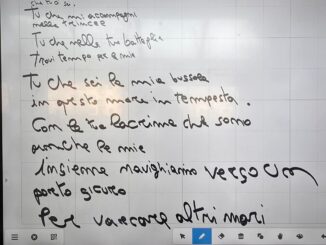 che io so.
Tu che mi accompagni
nelle trincee
Tu che nelle tue battaglie
trovi tempo per le mie
Tu che sei la mia bussola
in questo mare in tempesta.
Con le tue lacrime che sono
anche le mie
Insieme navighiamo verso un
porto sicuro
Per varcare altri mari